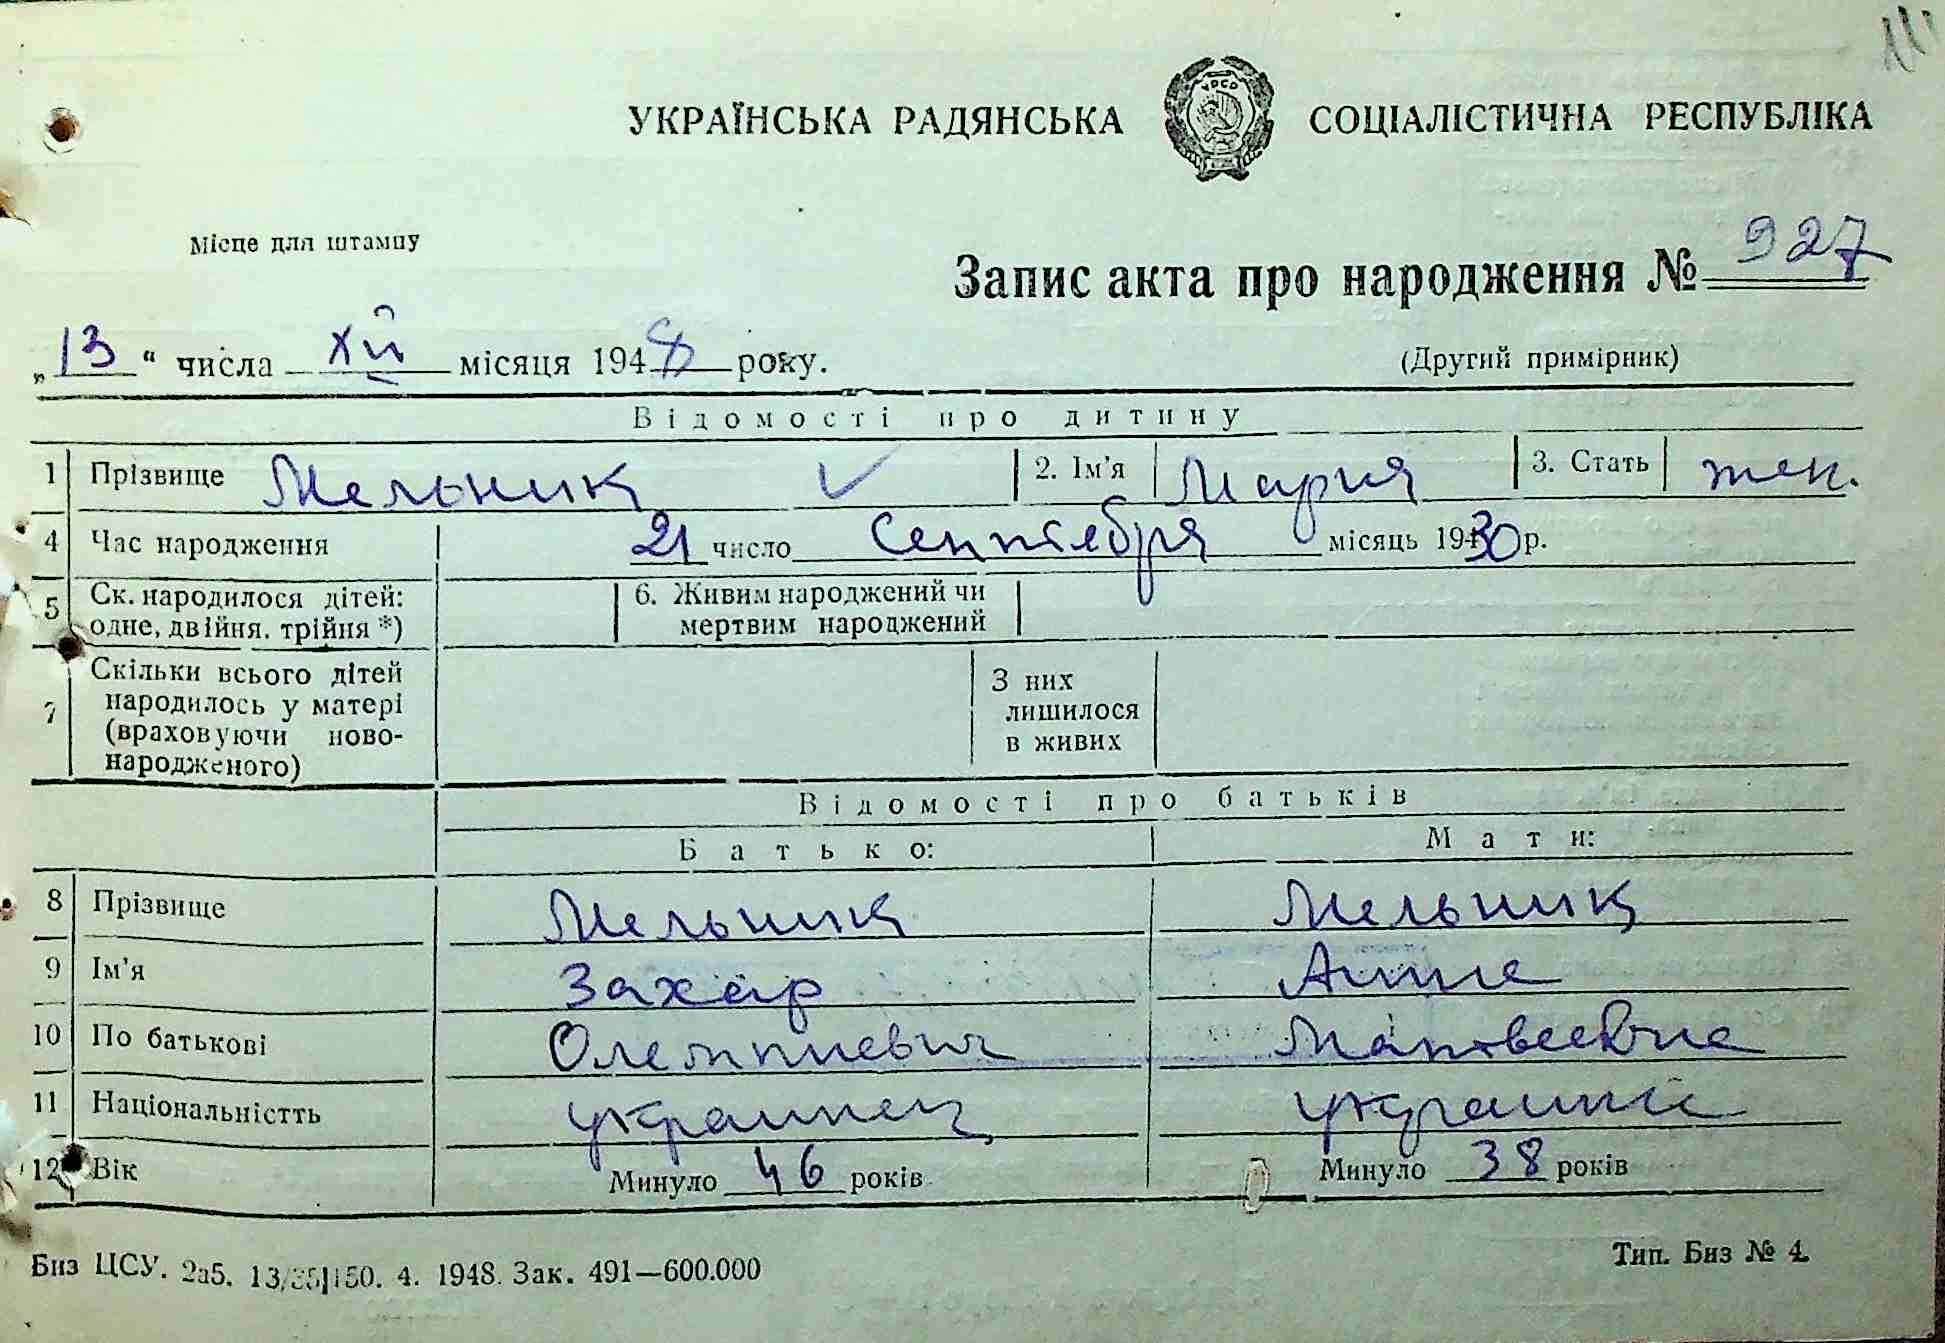 УКРАЇНСЬКА РАДЯНСЬКА СОЦІАЛІСТИЧНА РЕСПУБЛІКА
УРСР
Місце для штампу
Запис акта про народження № 927
„13“ числа XII місяця 1948 року.
(Другий примірник)
Відомості про дитину
1 Прізвище Мельник 2. Ім'я Мария 3. Стать жен.
4 Час народження 21 число Сентября місяць 1930 р.
5 Ск. народилося дітей: одне, двійня, трійня *)
6. Живим народжений чи мертвим народжений
7 Скільки всього дітей народилось у матері (враховуючи ново-народженого)
З них лишилося в живих
Відомості про батьків
Батько: Мати:
8 Прізвище Мельник Мельник
9 Ім'я Захар Анна
10 По батькові Олемпиевич Матвеевна
11 Національністть украинец украинка
12 Вік Минуло 46 років Минуло 38 років
Биз ЦСУ. 2а5. 13/35|150. 4. 1948. Зак. 491—600.000
Тип. Биз № 4.